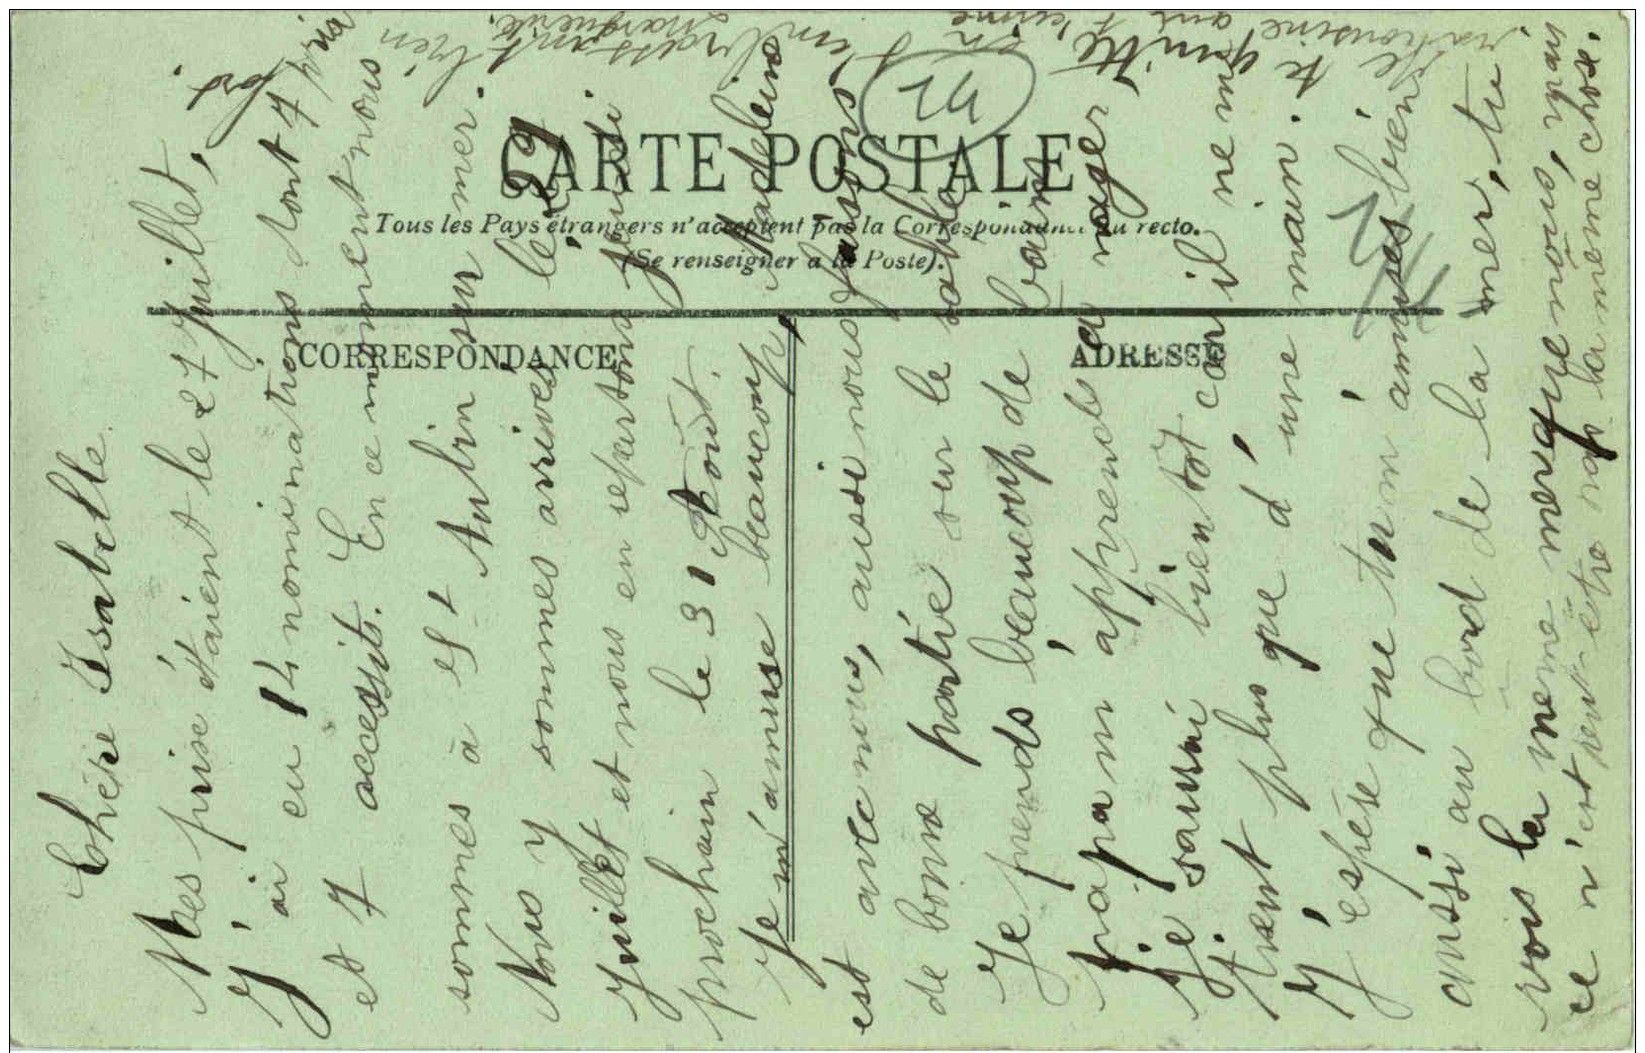 CARTE POSTALE
Tous les Pays étrangers n'acceptent pas la Correspondance au recto.
(Se renseigner à la Poste).
CORRESPONDANCE
ADRESSE
Chère Isabelle
Mes prix étaient le 27 Juillet,
J'ai eu 14 nominations dont 7 prix
et 7 accessits. En ce moment nous
sommes à St Aubin sur mer.
Nous y sommes arrivés le 29
Juillet et nous en repartons jeudi
prochain le 31 Août.
Je m'amuse beaucoup, Madeleine
est avec nous, aussi nous faisons
de bonne partie sur le sable.
Je prends beaucoup de bain
papa m'apprends à nager
je saurai bientôt car il ne me
tient plus que d'une main.
J'espère que tu m'amuses bien
aussi au bord de la mer, tu
vois la même mer que nous, mais
ce n'est peut être pas la même chose.
Je te quitte en t'embrassant bien
fort.
cousine qui t'aime
Marguerite.